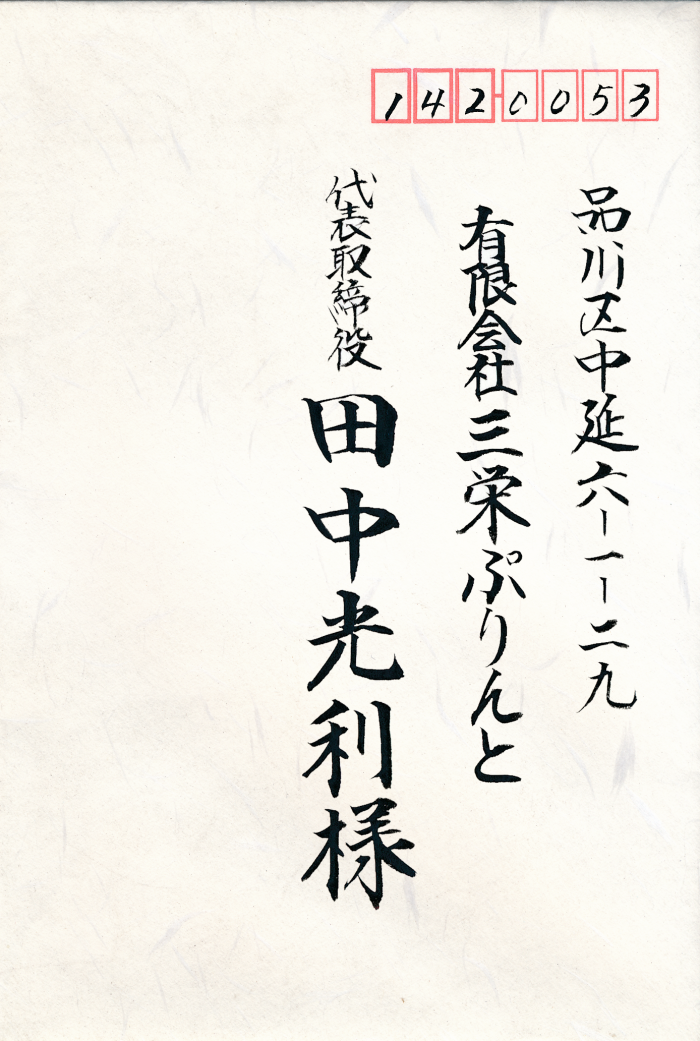 142-0053
品川区中延六ー一ー二九
有限会社三栄ぷりんと
代表取締役 田中光利様